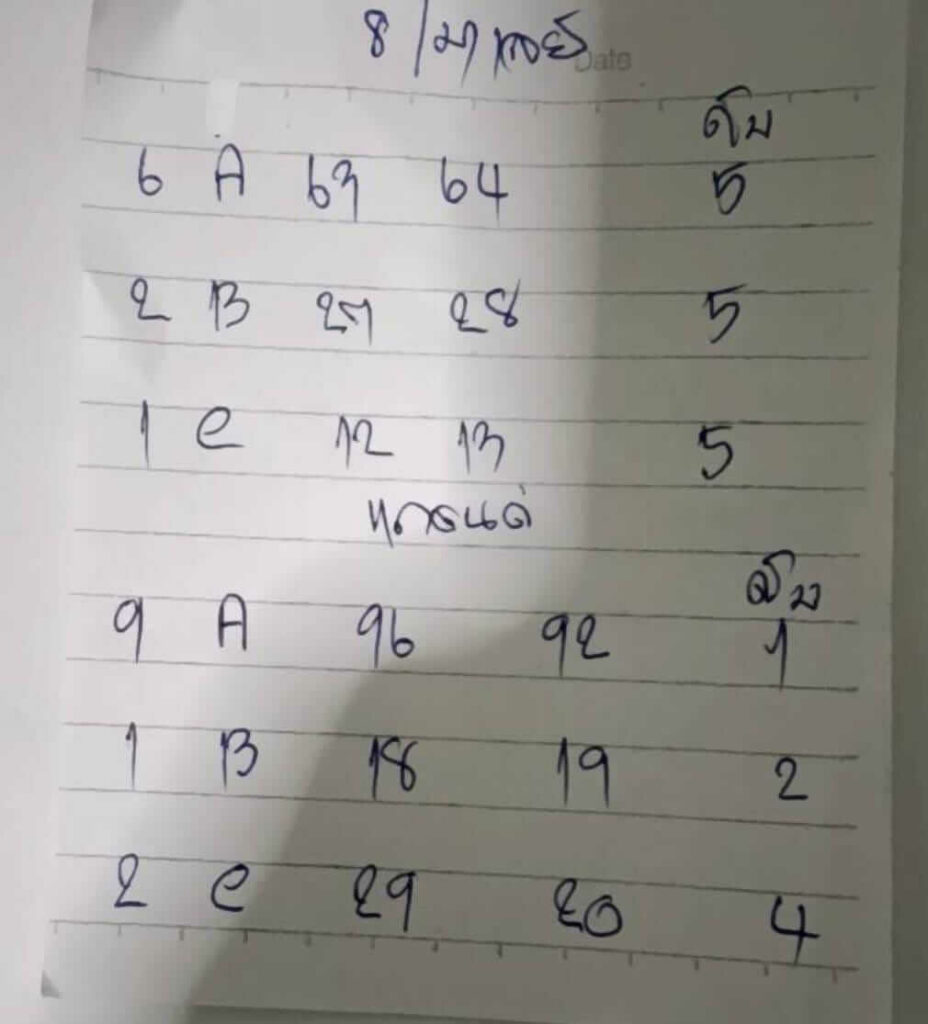 8/มา
Date
ดับ
6 A 63 64 5
2 B 27 28 5
1 C 12 13 5
ดับ
9 A 96 92 1
1 B 18 19 2
2 C 29 20 4